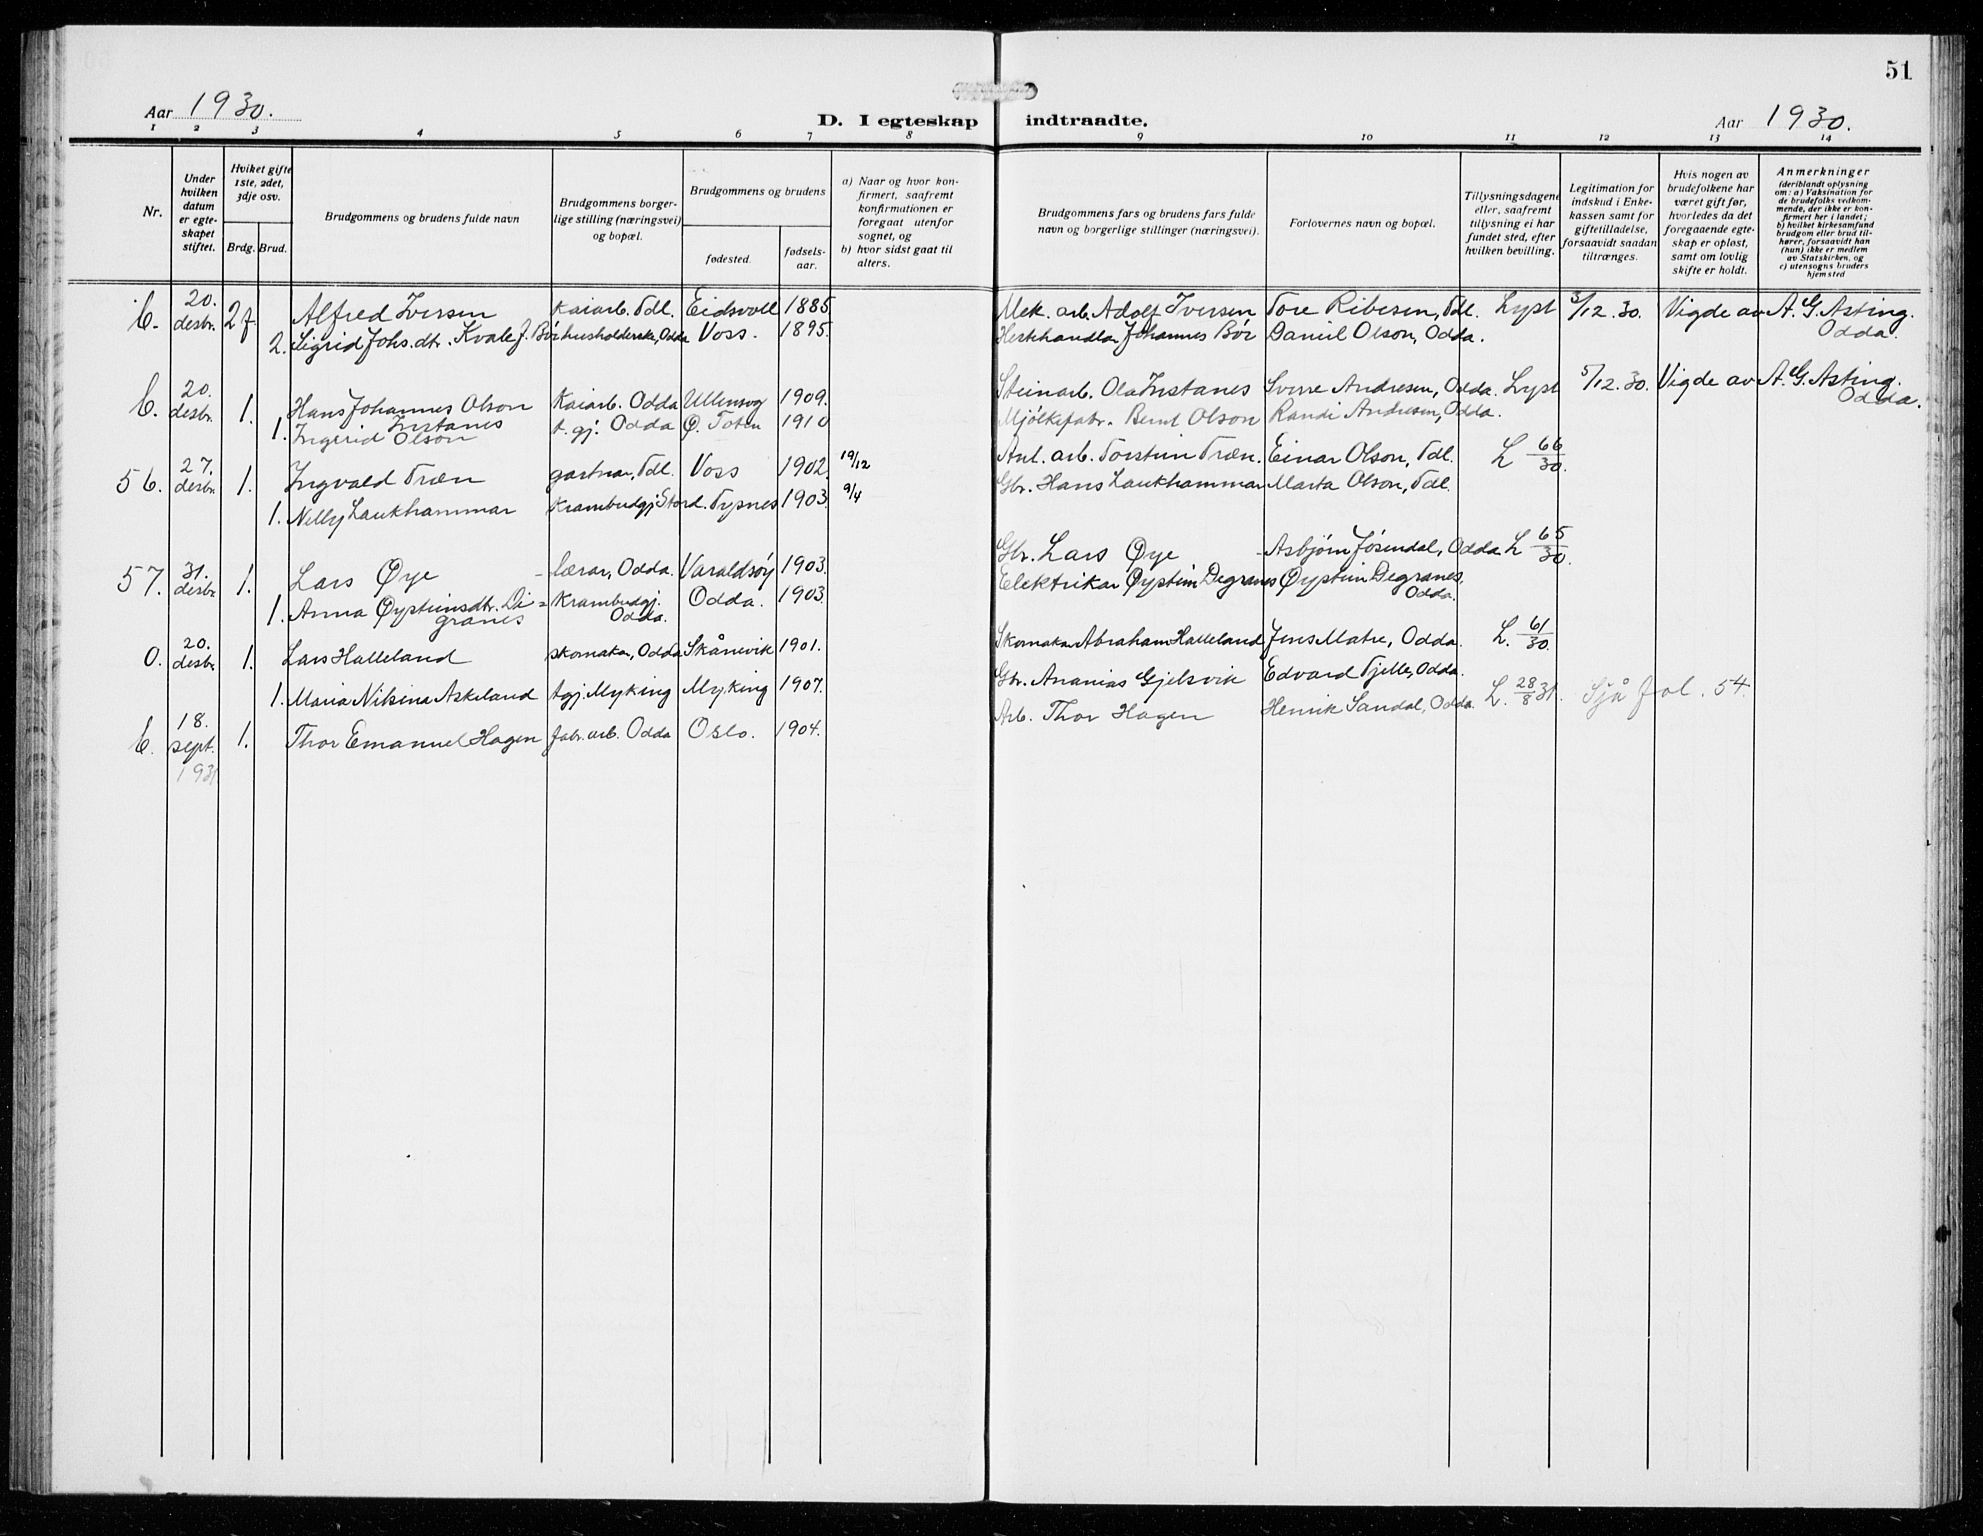 51
Aar 1930.
D. I egteskap indtraadte.
Aar 1930.
1 2 3 4 5 6 7 8 9 10 11 12 13 14
Nr.
Under hvilken datum er egteskapet stiftet.
Hviket gifte 1ste, 2det, 3dje osv.
Brdg. Brud.
Brudgommens og brudens fulde navn
Brudgommens borgerlige stilling (næringsvei) og bopæl.
Brudgommens og brudens
fødested.
fødselsaar.
a) Naar og hvor konfirmert, saafremt konfirmationen er foregaat utenfor sognet, og
b) hvor sidst gaat til alters.
Brudgommens fars og brudens fars fulde navn og borgerlige stillinger (næringsvei).
Forlovernes navn og bopæl.
Tillysningsdagene eller, saafremt tillysning ei har fundet sted, efter hvilken bevilling.
Legitimation for indskud i Enkekassen samt for giftetilladelse, forsaavidt saadan tiltrænges.
Hvis nogen av brudefolkene har været gift før, hvorledes da det foregaaende egteskap er opløst, samt om lovlig skifte er holdt.
Anmerkninger (deriblandt oplysning om: a) Vaksination for de brudefolks vedkommende, der ikke er konfirmert her i landet; b) hvilket kirkesamfund brudgom eller brud tilhører, forsaavidt han (hun) ikke er medlem av Statskirken, og c) utensogns bruders hjemsted
20. desbr. 2 f Alfred Iversen Kaiarb. Tdl. Eidsvoll 1885 Mek. arb. Adolf Iversen Tore Ribesen, Tdl. Lyst 3/12.30. Vigde av A. G. Asting. Odda.
2. Sigrid Johs.dtr. Kvale f. Bør husholderske, Odda Voss. 1895. Hestehandlar Johannes Bør Daniel Olson, Odda.
20. desbr. 1. Hans Johannes Olson Instanes Kaiarb. Odda Ullensvog 1909. Steinarb. Ola Instanes Sverre Andresen, Odda. Lyst 5/12.30. Vigde av A. G. Asting. Odda.
1. Ingerid Olson t. gj. Odda Ø. Toten 1910 Mjølkefabr. Bernt Olson Randi Andresen, Odda.
56. 27. desbr. 1. Ingvald Træn gartnar, Tdl. Voss 1902. 19/12 Anl. arb. Torstein Træn. Einar Olson, Tdl. L 66/30.
1. Nelly Laukhammar Krambudgj. Stord. Tysnes 1903. 9/4 Gbr. Hans Laukhammar Marta Olson, Tdl.
57. 31. desbr. 1. Lars Øye lærar, Odda. Varaldsøy 1903. Gbr. Lars Øye Asbjørn Jøsendal, Odda L 65/30.
1. Anna Øysteinsdtr. Digranes Krambudgj. Odda. Odda. 1903. Elektrikar Øystein Degranes Øystein Degranes. Odda.
0. 20. desbr. 1. Lars Halleland skomakar, Odda Skånevik 1901. Skomakar Abraham Halleland Jens Matre, Odda. L. 61/30.
1. Maria Nilsina Askeland tgj. Myking Myking 1907. Gbr. Ananias Gjelsvik Edvard Tjelle, Odda.
18. sept. 1931 1. Thor Emanuel Hagen fabr. arb. Odda Oslo. 1904. Arb. Thor Hagen Henrik Sandal, Odda. L. 28/8 31. Sjå fol. 54.